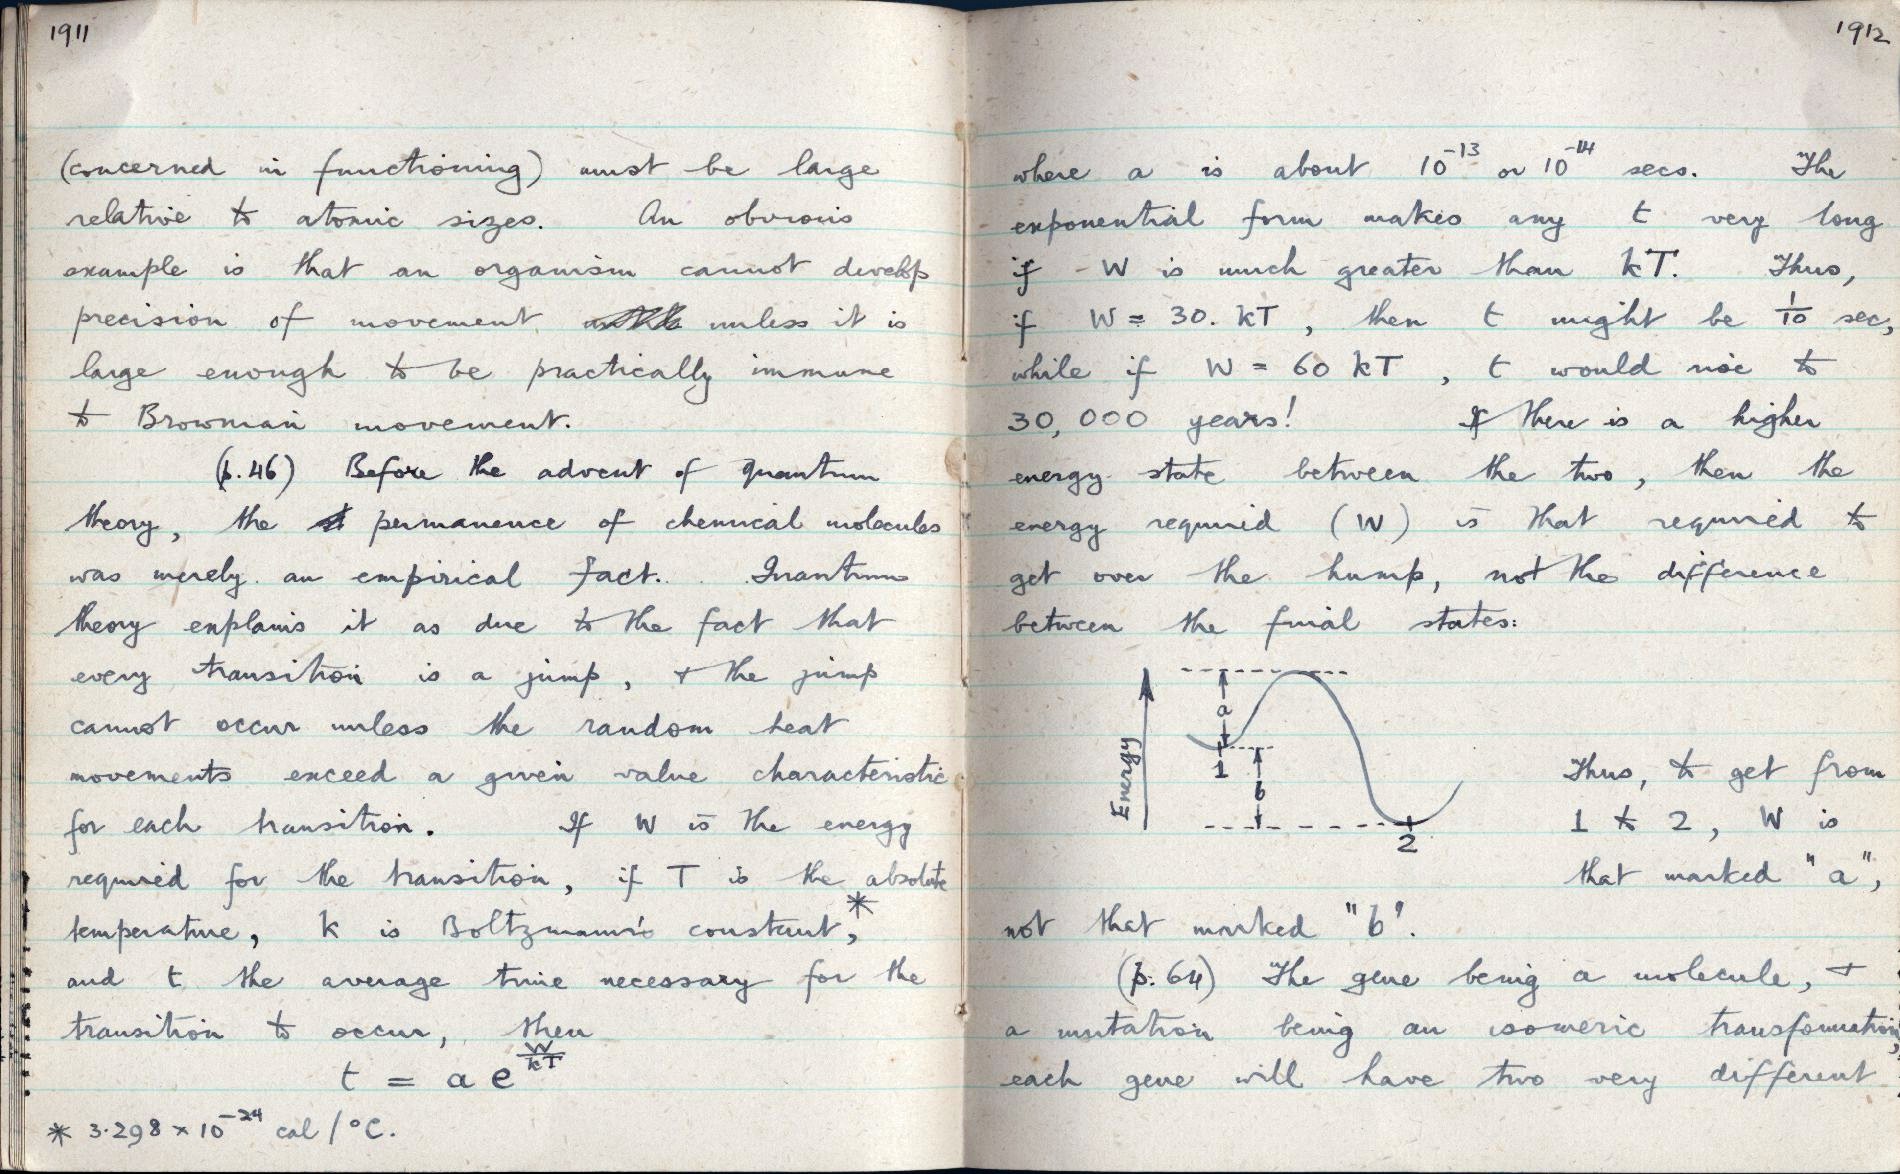 1911
(concerned in functioning) must be large
relative to atomic sizes. An obvious
example is that an organism cannot develop
precision of movement unless it is
large enough to be practically immune
to Brownian movement.
(p.46) Before the advent of quantum
theory, the permanence of chemical molecules
was merely an empirical fact. Quantum
theory explains it as due to the fact that
every transition is a jump, + the jump
cannot occur unless the random heat
movements exceed a given value characteristic
for each transition. If W is the energy
required for the transition, if T is the absolute
temperature, k is Boltzmann's constant,*
and t the average time necessary for the
transition to occur, then
t = a e^(W/kT)
* 3.298 × 10^-24 cal/°C.
1912
where a is about 10^-13 or 10^-14 secs. The
exponential form makes any t very long
if W is much greater than kT. Thus,
if W = 30. kT, then t might be 1/10 sec,
while if W = 60 kT, t would rise to
30,000 years! If there is a higher
energy state between the two, then the
energy required (W) is that required to
get over the hump, not the difference
between the final states:
Energy
a
1
b
2
Thus, to get from
1 to 2, W is
that marked "a",
not that marked "b".
(p.64) The gene being a molecule, +
a mutation being an isomeric transformation,
each gene will have two very different